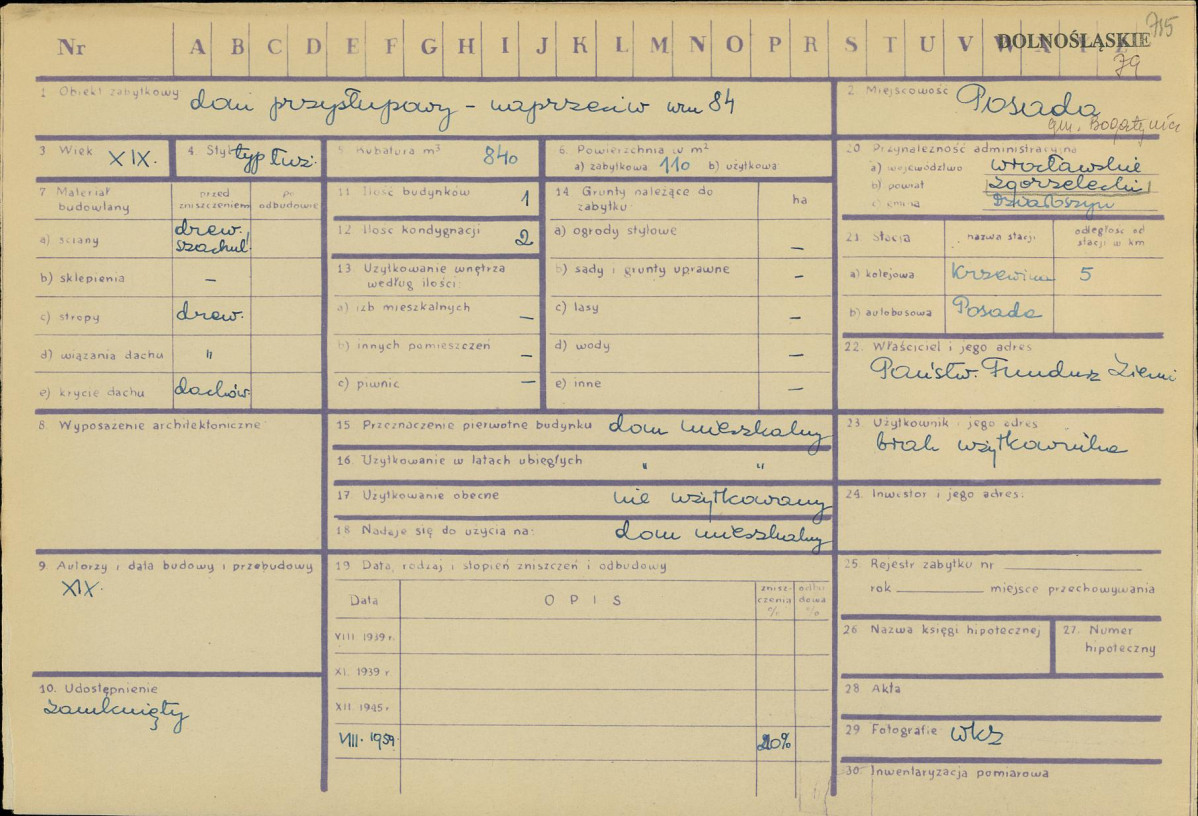 715
Nr A B C D E F G H I J K L M N O P R S T U V W
DOLNOŚLĄSKIE
79
1 Obiekt zabytkowy dom przysłupowy - naprzeciw nru 84
2. Miejscowość Posada
gm. Bogatynia
3 Wiek XIX.
4. Styl typ łuż.
5. Kubatura m³ 840
6. Powierzchnia w m²
a) zabytkowa 110 b) użytkowa
7 Materiał budowlany
przed zniszczeniem
po odbudowie
a) ściany drew. szachul.
b) sklepienia –
c) stropy drew.
d) wiązania dachu "
e) krycie dachu dachów.
8. Wyposażenie architektoniczne
9. Autorzy i data budowy i przebudowy
XIX.
10. Udostępnienie
zamknięty
11 Ilość budynków 1
12 Ilość kondygnacji 2
13 Użytkowanie wnętrza
według ilości:
a) izb mieszkalnych –
b) innych pomieszczeń –
c) piwnic –
14 Grunty należące do
zabytku: ha
a) ogrody stylowe –
b) sady i grunty uprawne –
c) lasy –
d) wody –
e) inne –
15 Przeznaczenie pierwotne budynku dom mieszkalny
16. Użytkowanie w latach ubiegłych " "
17 Użytkowanie obecne nie użytkowany
18 Nadaje się do użycia na: dom mieszkalny
19 Data, rodzaj i stopień zniszczeń i odbudowy
Data OPIS zniszczenia % odbudowa %
VIII 1939 r.
XI. 1939 r
XII. 1945 r
VIII. 1959. 20%
20 Przynależność administracyjna
a) województwo wrocławskie
b) powiat zgorzelecki
c) gmina Działoszyn
21. Stacja nazwa stacji odległość od
stacji w km
a) kolejowa Krzewina 5
b) autobusowa Posada
22. Właściciel i jego adres
Państw. Fundusz Ziemi
23. Użytkownik i jego adres
brak użytkownika
24. Inwestor i jego adres:
25. Rejestr zabytku nr
rok miejsce przechowywania
26 Nazwa księgi hipotecznej
27. Numer
hipoteczny
28. Akta
29 Fotografie WKZ
30. Inwentaryzacja pomiarowa